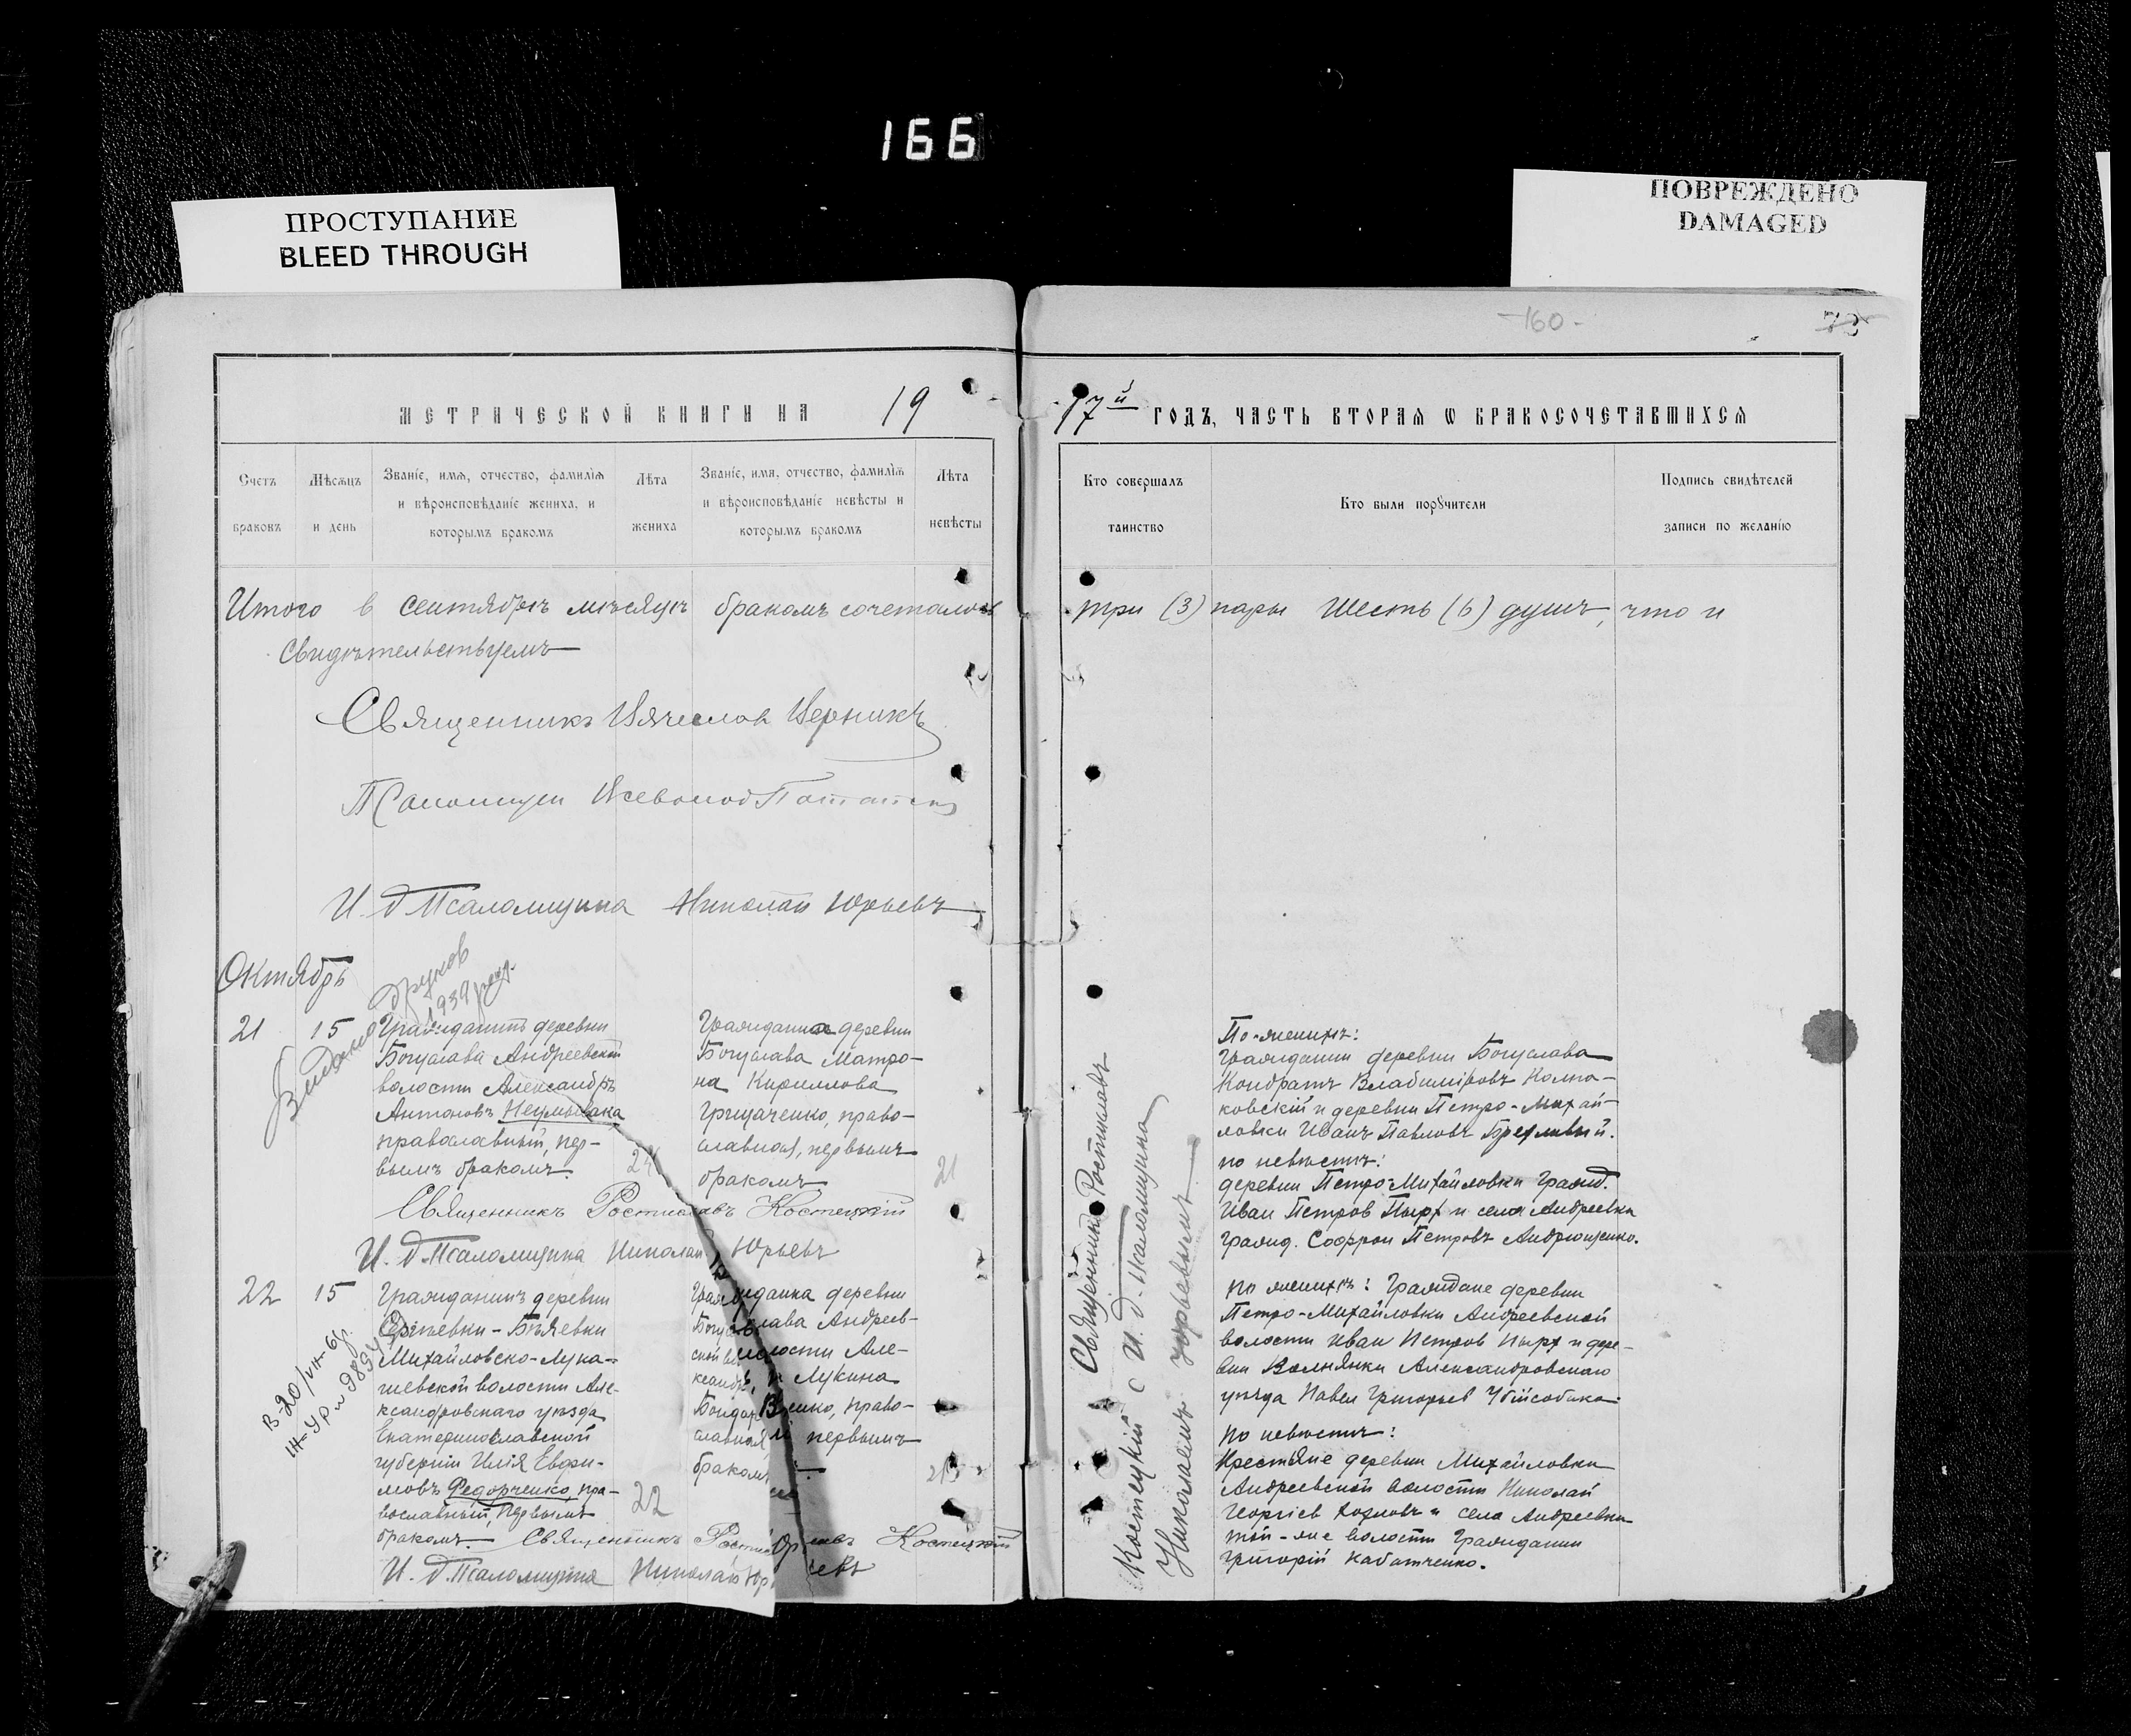 166
ПРОСТУПАНИЕ
BLEED THROUGH
ПОВРЕЖДЕНО
DAMAGED
-160-
МЕТРИЧЕСКОЙ КНИГИ НА 19
17й ГОДЪ, ЧАСТЬ ВТОРАЯ Ѡ БРАКОСОЧЕТАВШИХСЯ
Счетъ браковъ
Мѣсяцъ и день
Званіе, имя, отчество, фамилія
и вѣроисповѣданіе жениха, и
которымъ бракомъ
Лѣта жениха
Званіе, имя, отчество, фамилія
и вѣроисповѣданіе невѣсты и
которымъ бракомъ
Лѣта невѣсты
Кто совершалъ таинство
Кто были порꙋчители
Подпись свидѣтелей записи по желанію
Итого в Сентябрѣ мѣсяцѣ бракомъ сочеталось три (3) пары шесть (6) душъ, что и
Свидѣтельствуемъ
Священникъ Вячеслав
Псаломщик Всеволод
И. д. Псаломщика Николай Юрьевъ
Октябрь
1939
21
15
Гражданинъ деревни
Богуслава Андреевской
волости Александръ
Антоновъ
православный, пер-
вымъ бракомъ.
24
Гражданка деревни
Богуслава Матро-
на Кириллова
Грищаченко, право-
славная, первымъ
бракомъ
21
Священникъ Ростиславъ Костецкій
И. д. Псаломщика Николай Юрьевъ
По женихѣ:
Гражданин деревни Богуслава
Кондратъ Владиміровъ Колпа-
ковскій и деревни Петро-Михай-
ловки Иванъ Павловъ
по невѣстѣ:
деревни Петро-Михайловки Гражд.
Иван Петров Пырх и села Андреевки
гражд. Софрон Петровъ Андрющенко.
Священник Ростиславъ
Костецкій с И. д. псаломщика
Николаемъ Юрьевымъ
22
15
Гражданинъ деревни
Сергѣевки-Бѣляевки
Михайловско-Лука-
шевской волости Але-
ксандровскаго уѣзда
Екатеринославской
губерніи Илія Евфи-
мовъ Федорченко, пра-
вославный, первымъ
бракомъ.
22
Гражданка деревни
Богуслава Андреев-
ской волости Але-
ксандра Лукина
Бондаренко, право-
славная первымъ
бракомъ
Священникъ Ростиславъ Костецкій
И. д. Псаломщика Николай Юрьевъ
по женихѣ: Граждане деревни
Петро-Михайловки Андреевской
волости Иван Петров Пырх и дере-
вни Вольнянки Александровскаго
уѣзда Павел Григорьев Убійсобака.
по невѣстѣ:
Крестьяне деревни Михайловки
Андреевской волости Николай
Георгіев Козловъ и села Андреевки
той-же волости Гражданин
Григорій Кабатченко.